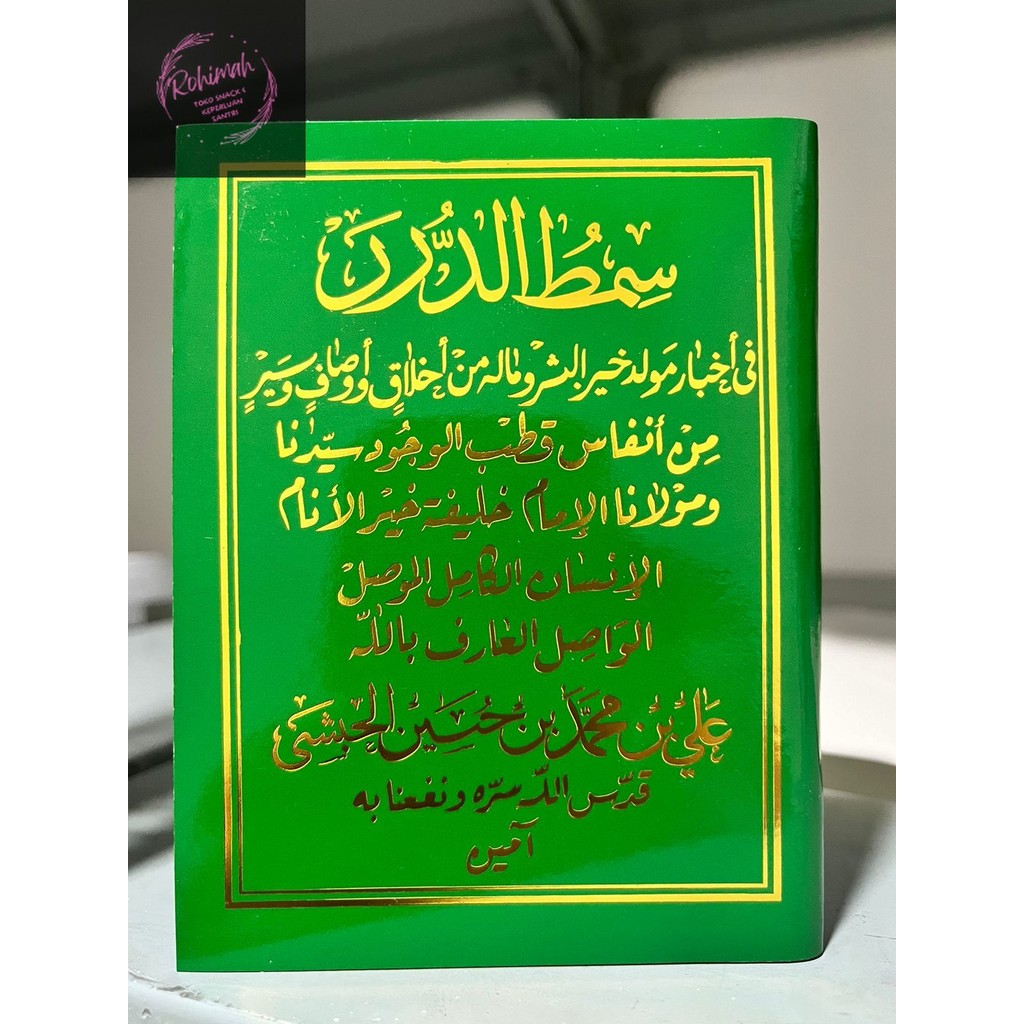 Rohimah
TOKO SNACK &
KEPERLUAN
SANTRI
سِمْطُ الدُّرَرْ
فى أخبار مَولد خير البشر وماله منْ أخلاقٍ وأوصافٍ وسيَرْ
مِنْ أنفاس قطب الوجُود سيّدنا
ومَوْلانا الإمام خليفة خيْر الأنام
الإنسان الكامِل الموصِلْ
الوَاصِل العَارف باللّه
عَلي بْن محمَّد بن حُسَيْن الحبْشِى
قدّس اللّه سرّه ونفعنا به
آمين